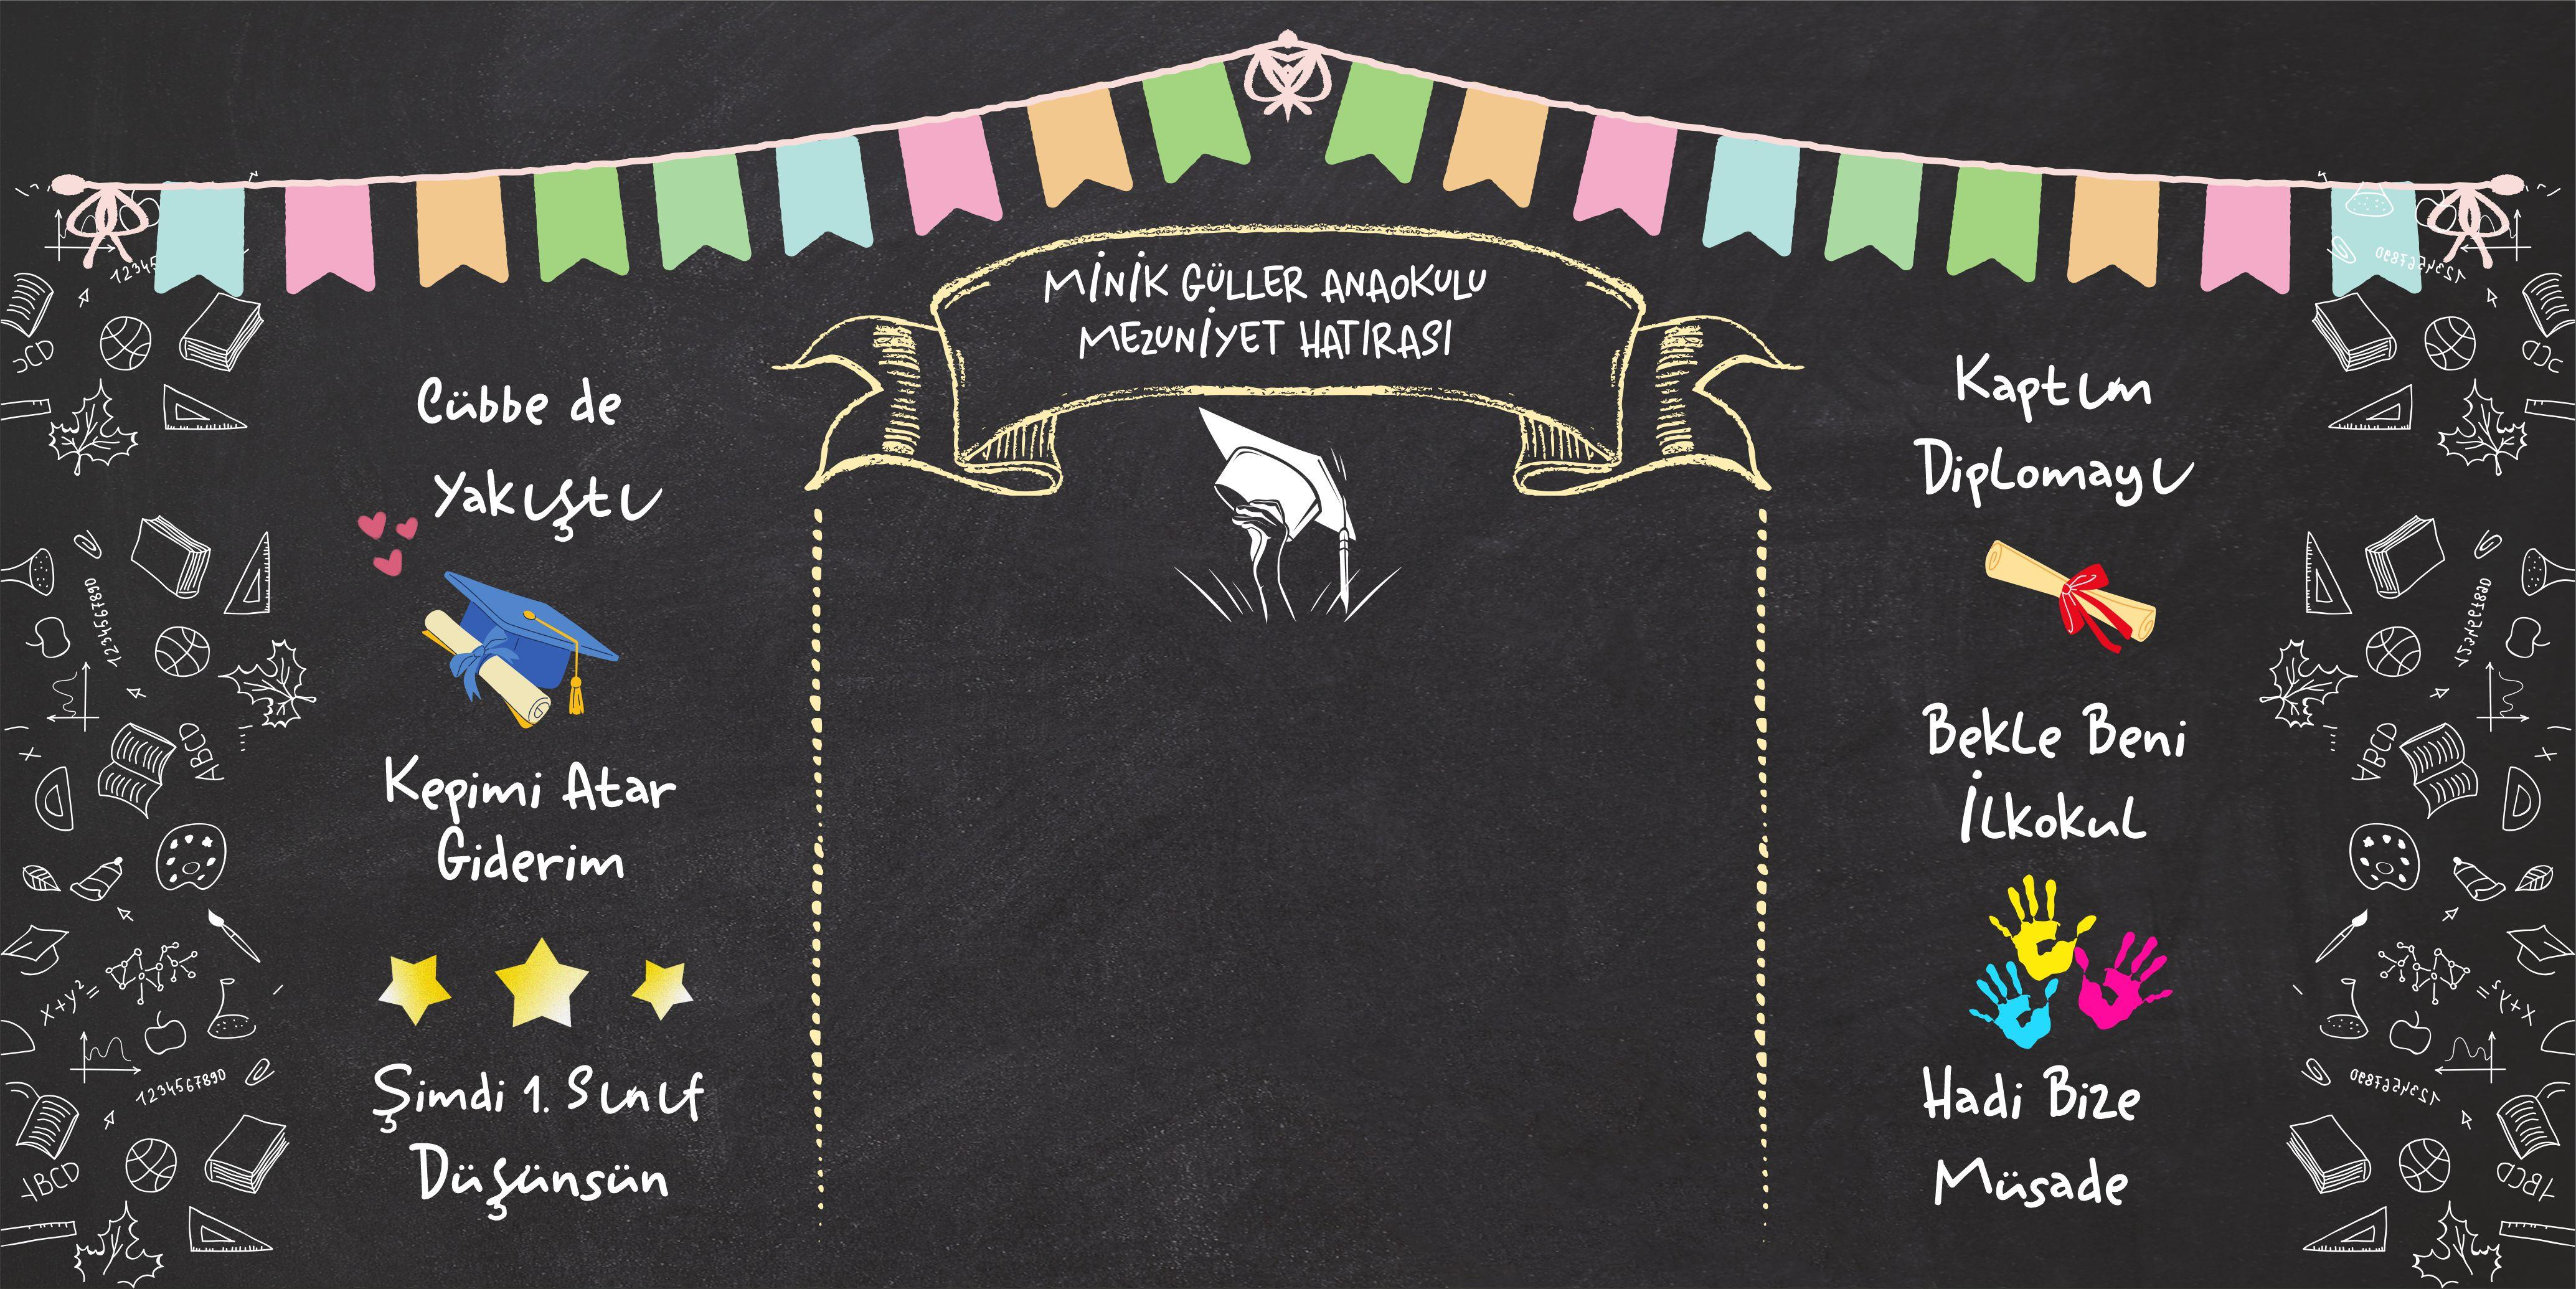 MİNİK GÜLLER ANAOKULU
MEZUNİYET HATIRASI
Cübbe de
Yakıştı
Kepimi Atar
Giderim
Şimdi 1. Sınıf
Düşünsün
Kaptım
Diplomayı
Bekle Beni
İlkokul
Hadi Bize
Müsade
12345
1234567890
ABCD
x+y²=
1234567890
ABCD
1234567890
1234567890
ABCD
x+y²=
1234567890
ABCD